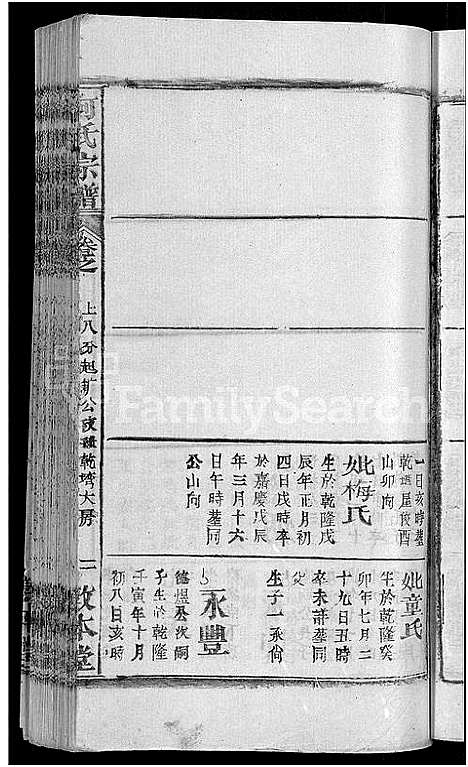 一日亥時墓
乾邊屋後酉
山卯向
妣梅氏
生於乾隆戊
辰年正月初
四日戌時卒
於嘉慶戊辰
年三月十六
日午時墓同
公山向
妣童氏
生於乾隆癸
卯年七月二
十九日丑時
卒未詳墓同
生子一承尙
永豐
德煜公次嗣
子生於乾隆
壬寅年十月
初八日亥時
何氏宗譜
卷之
上八分起
公
乾塆大房
一
敦本堂
FamilySearch